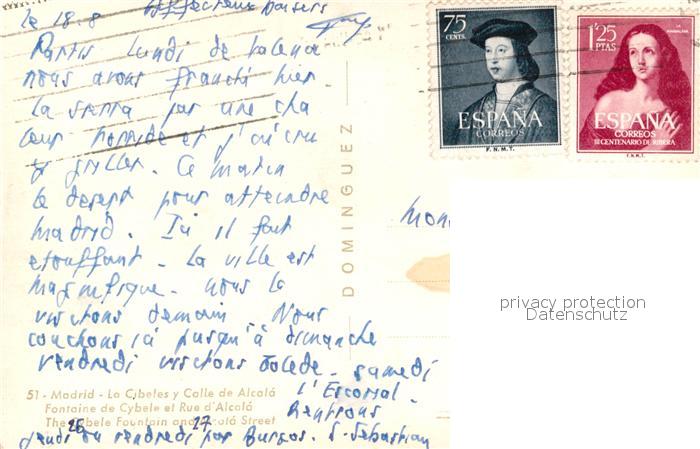 le 18.8 Affectueux Baisers
Partis lundi de Valencia
nous avons franchi hier
la sierra par une cha
leur horrible et j'ai cru
y griller. Ce matin
le desert pour atteindre
Madrid. Ici il fait
etouffant. La ville est
magnifique. nous la
visitons demain. Nous
couchons ici jusqu'à dimanche
vendredi visitons Tolede. samedi
l'Escorial.
Rentrons
jeudi ou vendredi par Burgos. S-Sebastian
26 27
51 - Madrid - La Cibeles y Calle de Alcalá
Fontaine de Cybele et Rue d'Alcalá
The Cybele Fountain and Alcalá Street
DOMINGUEZ
75
CENTS.
ESPAÑA
CORREOS
F.N.M.T.
1'25
PTAS
ESPAÑA
CORREOS
III CENTENARIO DE RIBERA
F.N.M.T.
privacy protection
Datenschutz